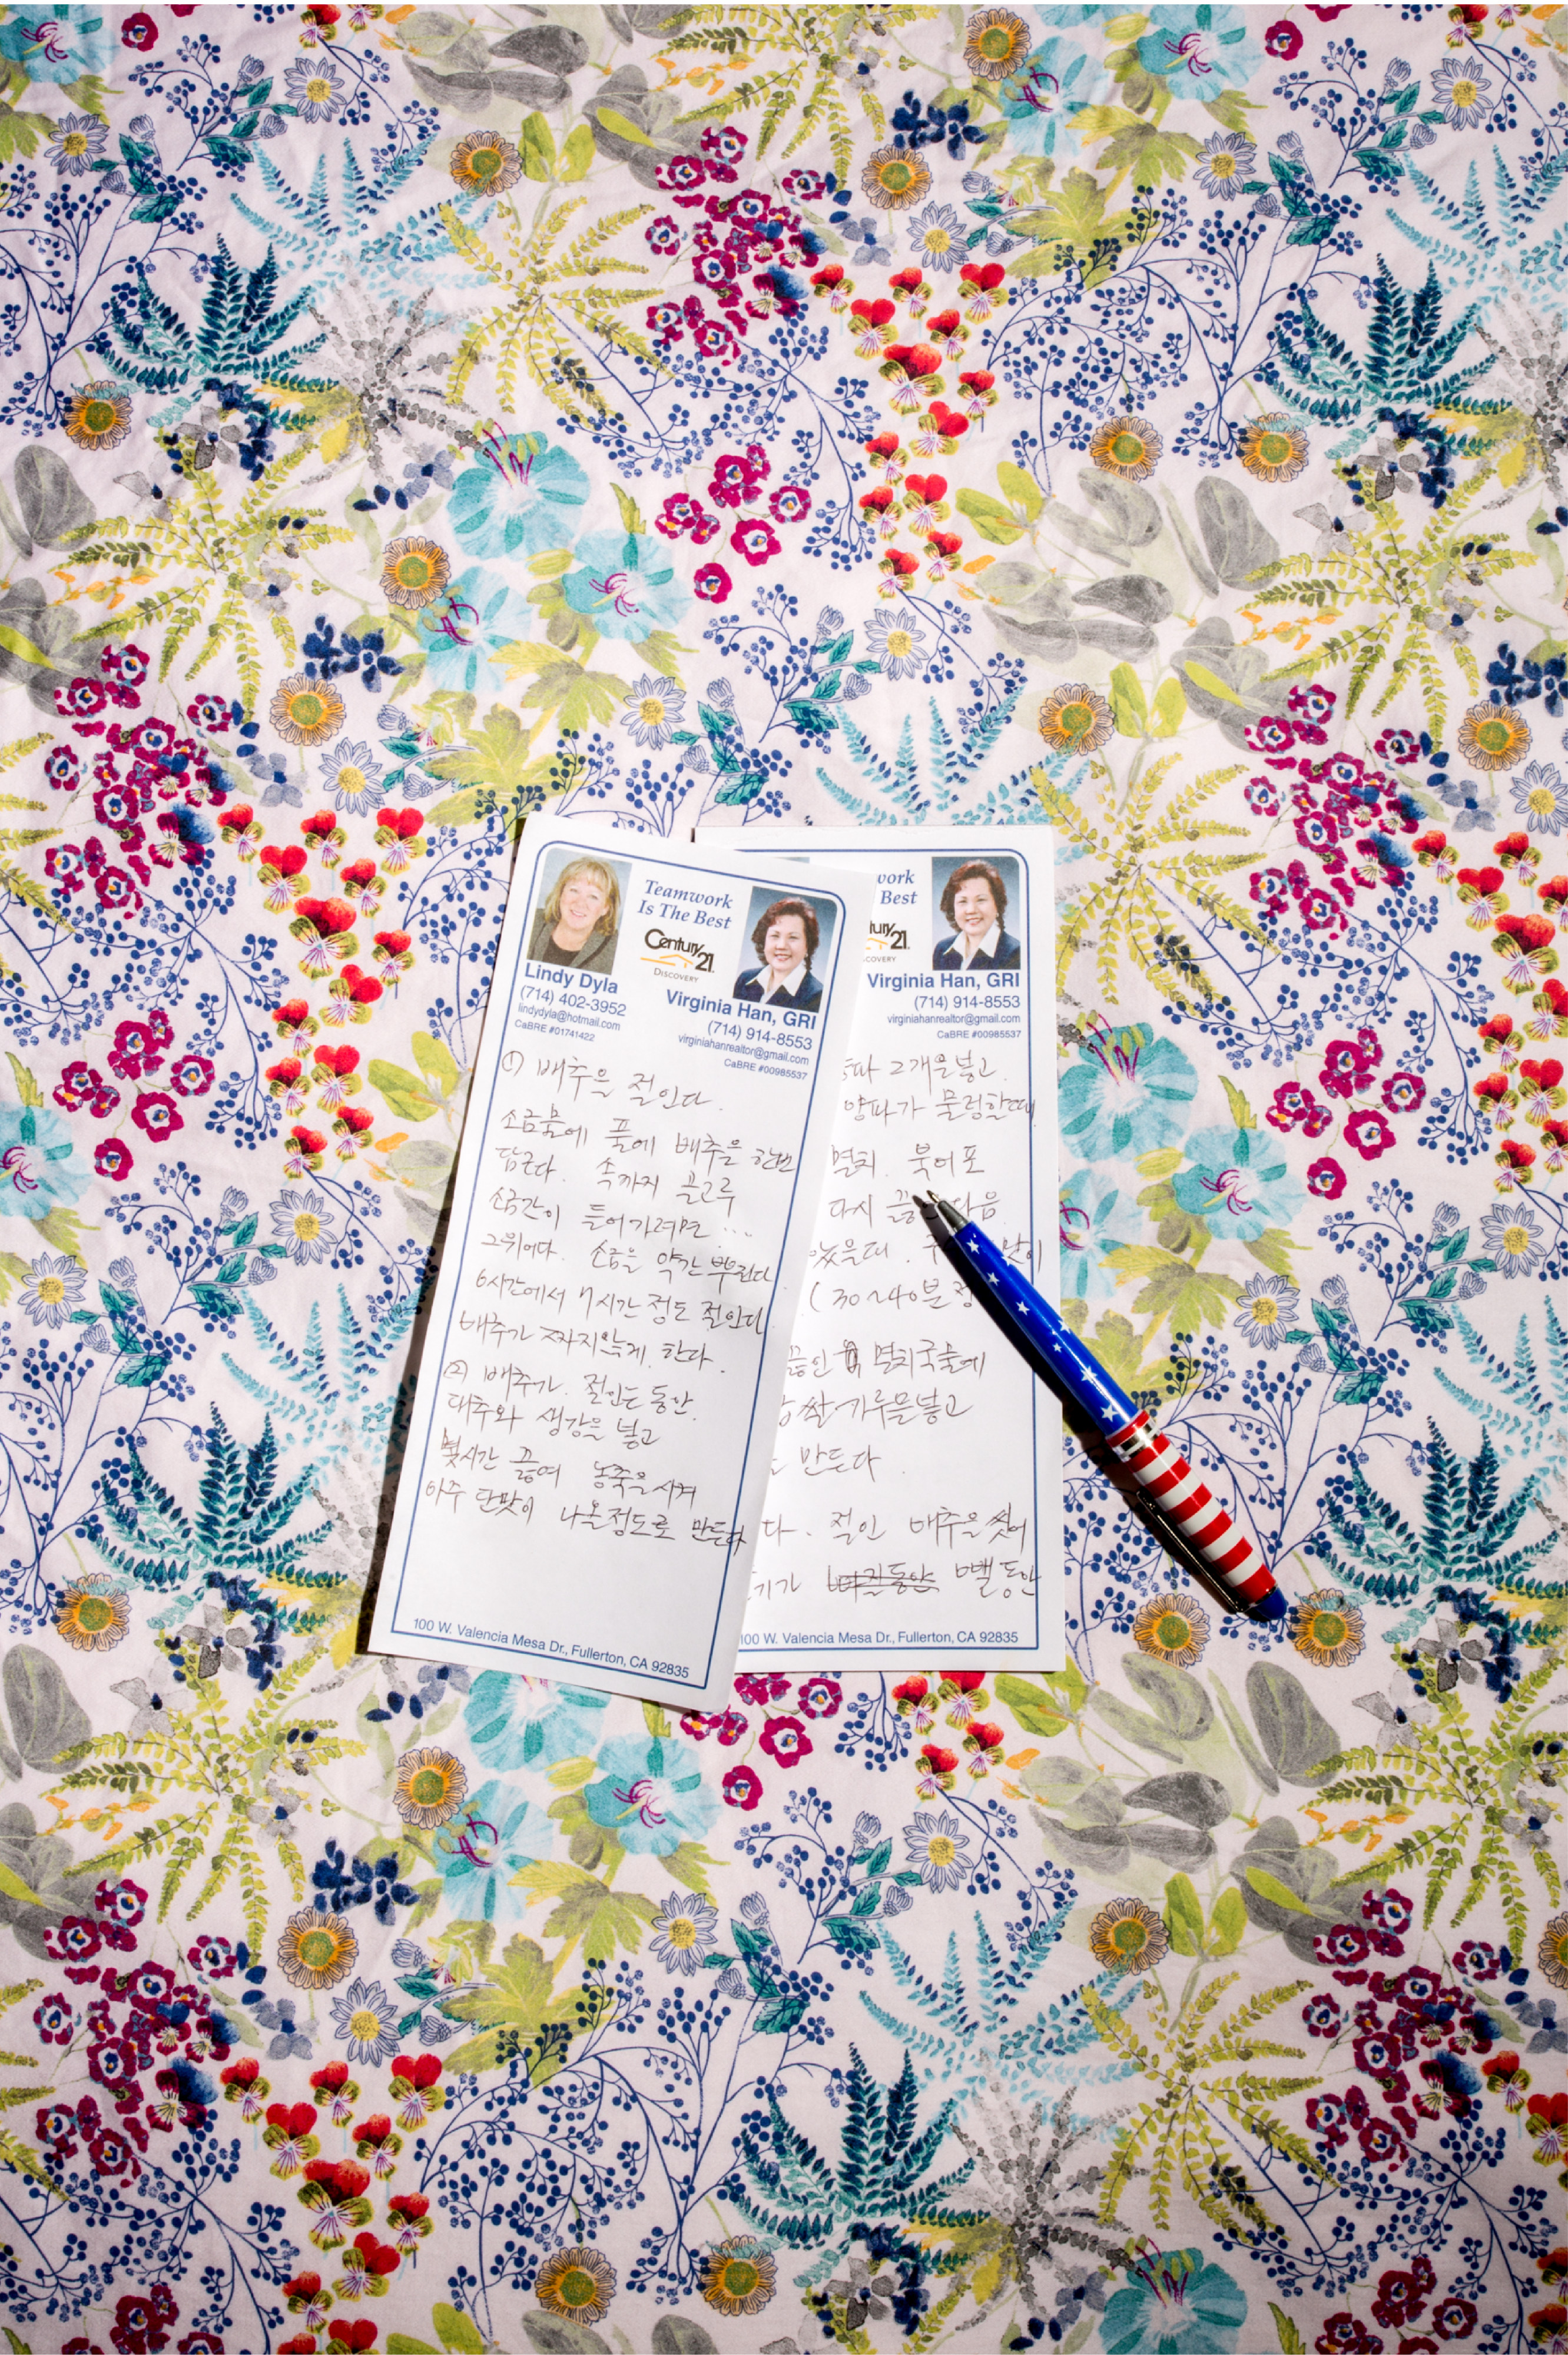 Teamwork
Is The Best
Century 21
DISCOVERY
Lindy Dyla
(714) 402-3952
lindydyla@hotmail.com
CaBRE #01741422
Virginia Han, GRI
(714) 914-8553
virginiahanrealtor@gmail.com
CaBRE #00985537
① 배추을 절인다.
소금물에 풀에 배추을 한번
담근다. 속까지 골고루
소금간이 들어가려면...
그위에다. 소금을 약간 뿌린다.
6시간에서 7시간 정도 절인다.
배추가 짜지않게. 한다.
② 배추가. 절인는 동안.
대추와 생강을 넣고
몇시간 끓여 농축을 시켜
아주 단맛이 나올정도로 만든다
100 W. Valencia Mesa Dr., Fullerton, CA 92835
work
Best
tury 21
COVERY
Virginia Han, GRI
(714) 914-8553
virginiahanrealtor@gmail.com
CaBRE #00985537
2개을넣고.
양파가 물렁할때
멸치. 북어포
다시 다음
있을때.
(30~40분
끓인 멸치국물에
찹쌀가루을넣고
만든다.
다. 절인 배추을 씻어
뺄동안
100 W. Valencia Mesa Dr., Fullerton, CA 92835